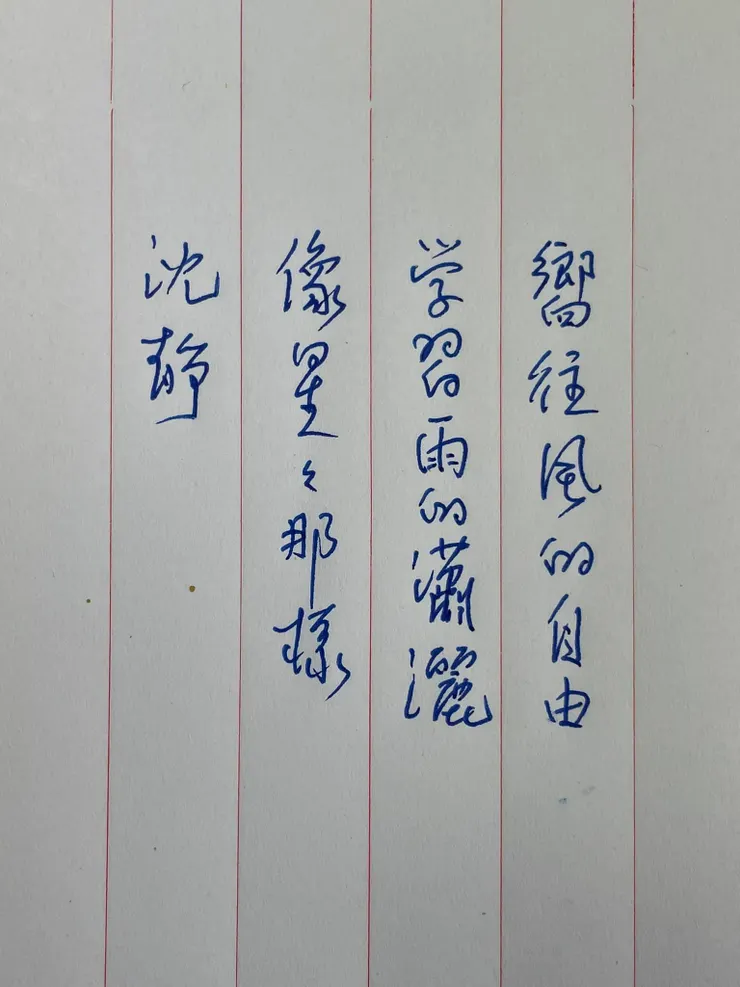 嚮往風的自由
学習雨的瀟灑
像星々那樣
沈静